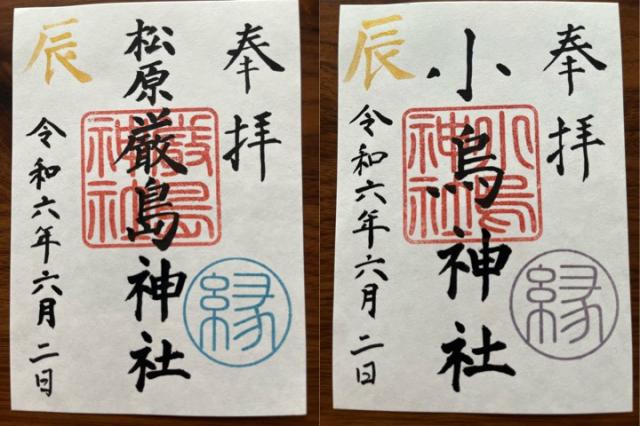 奉拝
松原厳島神社
厳島神社
縁
辰
令和六年六月二日
奉拝
小烏神社
小烏神社
縁
辰
令和六年六月二日